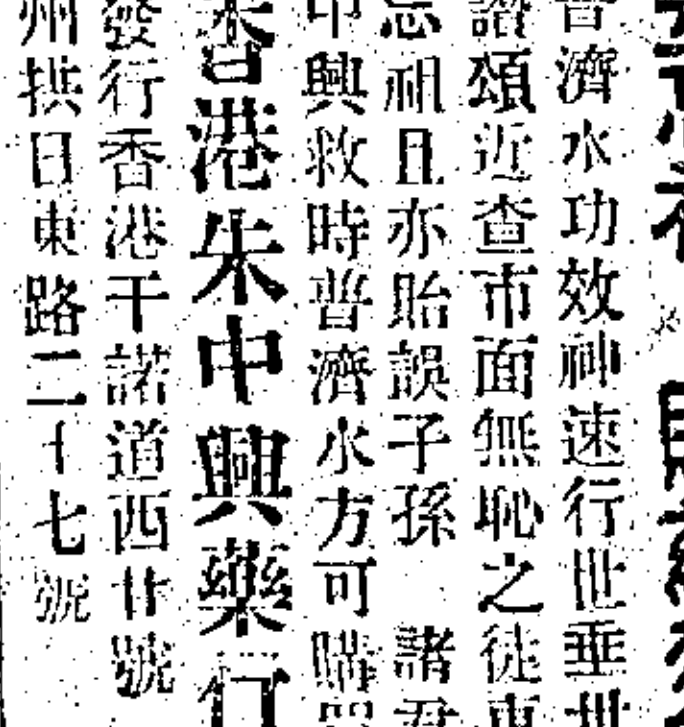 普濟水功效神速行世垂卅
讚頌近查市面無恥之徒
忘祖且亦貽誤子孫 諸君
中興救時普濟水方可購
香港朱中興藥行
發行香港干諾道西廿號
州拱日東路二十七號